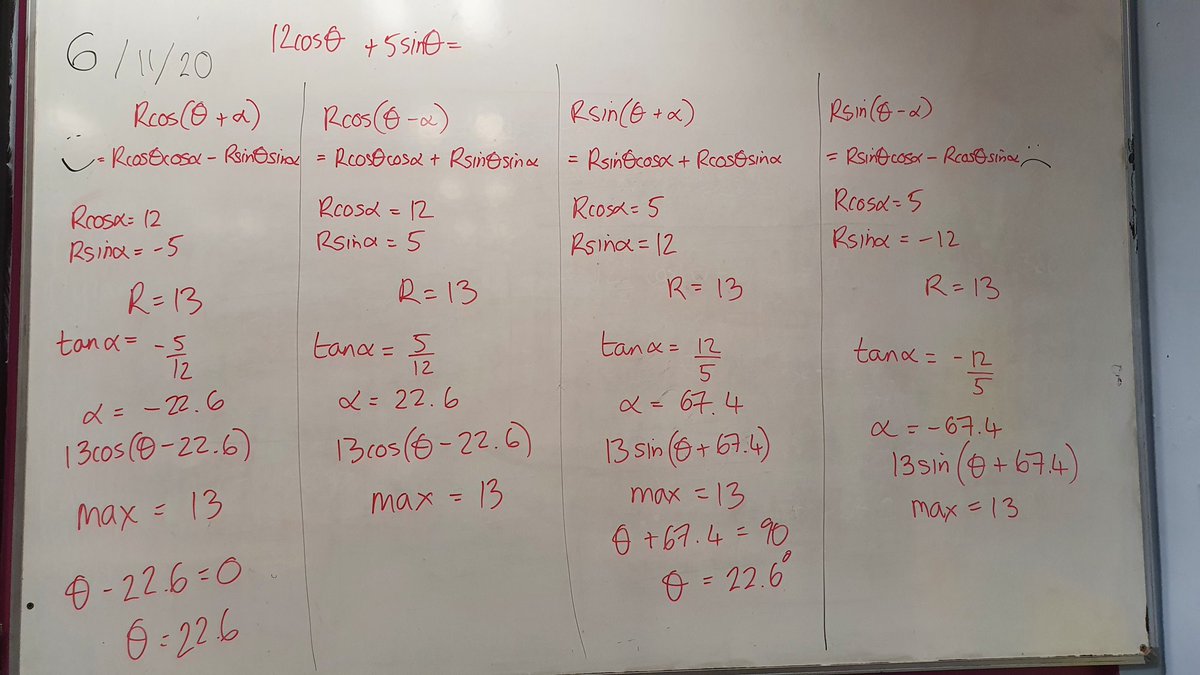 6/11/20
12cosθ + 5sinθ =
Rcos(θ + α)
= Rcosθcosα - Rsinθsinα
Rcosα = 12
Rsinα = -5
R = 13
tanα = -5/12
α = -22.6
13cos(θ - 22.6)
max = 13
θ - 22.6 = 0
θ = 22.6
Rcos(θ - α)
= Rcosθcosα + Rsinθsinα
Rcosα = 12
Rsinα = 5
R = 13
tanα = 5/12
α = 22.6
13cos(θ - 22.6)
max = 13
Rsin(θ + α)
= Rsinθcosα + Rcosθsinα
Rcosα = 5
Rsinα = 12
R = 13
tanα = 12/5
α = 67.4
13sin(θ + 67.4)
max = 13
θ + 67.4 = 90
θ = 22.6°
Rsin(θ - α)
= Rsinθcosα - Rcosθsinα
Rcosα = 5
Rsinα = -12
R = 13
tanα = -12/5
α = -67.4
13sin(θ + 67.4)
max = 13